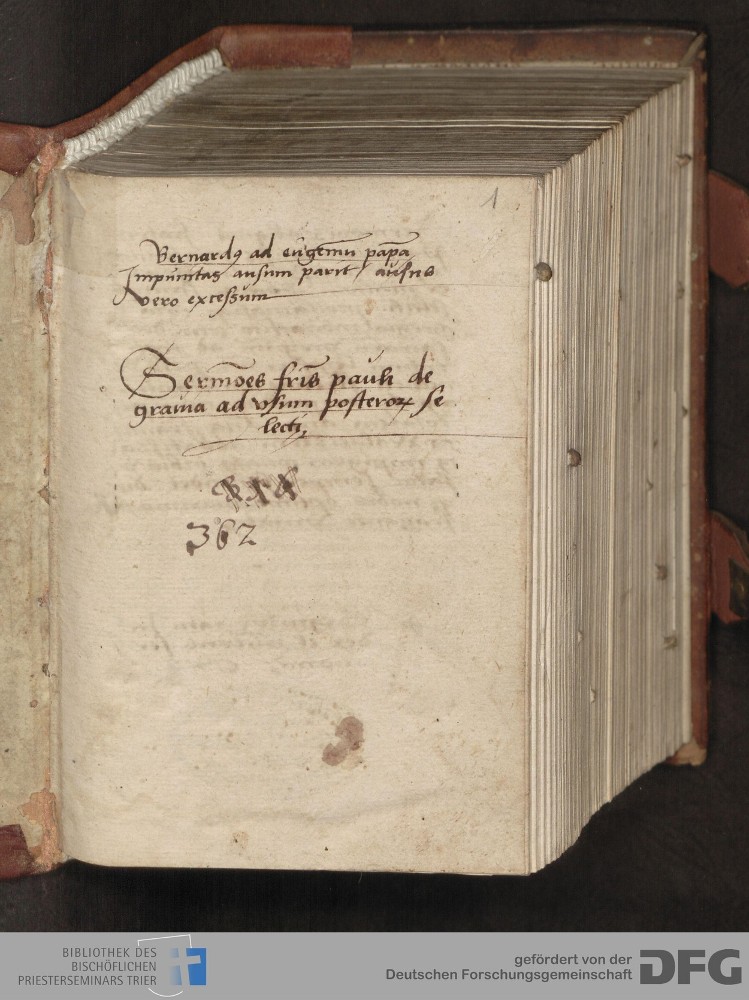 1
Bernardꝰ ad eugeniū papā
Impunitas ausum parit / ausus
vero excessum
Sermōes frīs pauli de
grauia ad vsum posteroꝝ se
lecti,
R14
362
BIBLIOTHEK DES
BISCHÖFLICHEN
PRIESTERSEMINARS TRIER
gefördert von der
Deutschen Forschungsgemeinschaft
DFG